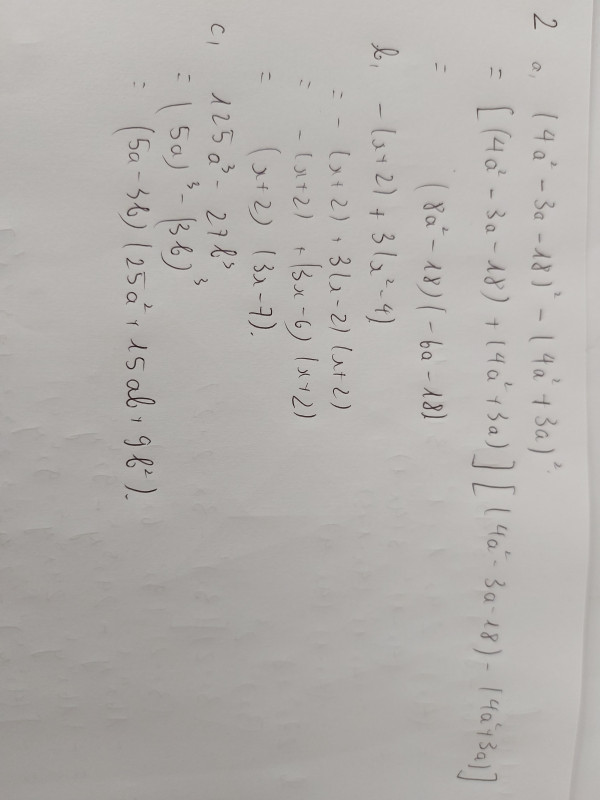 2 a, (4a² - 3a - 18)² - (4a² + 3a)².
= [(4a² - 3a - 18) + (4a² + 3a)] [(4a² - 3a - 18) - (4a² + 3a)]
= (8a² - 18) (-6a - 18)
b, - (x+2) + 3(x² - 4)
= - (x+2) + 3(x-2) (x+2)
= - (x+2) + (3x-6) (x+2)
= (x+2) (3x-7).
c, 125a³ - 27b³
= (5a)³ - (3b)³
= (5a - 3b) (25a² + 15ab + 9b²).